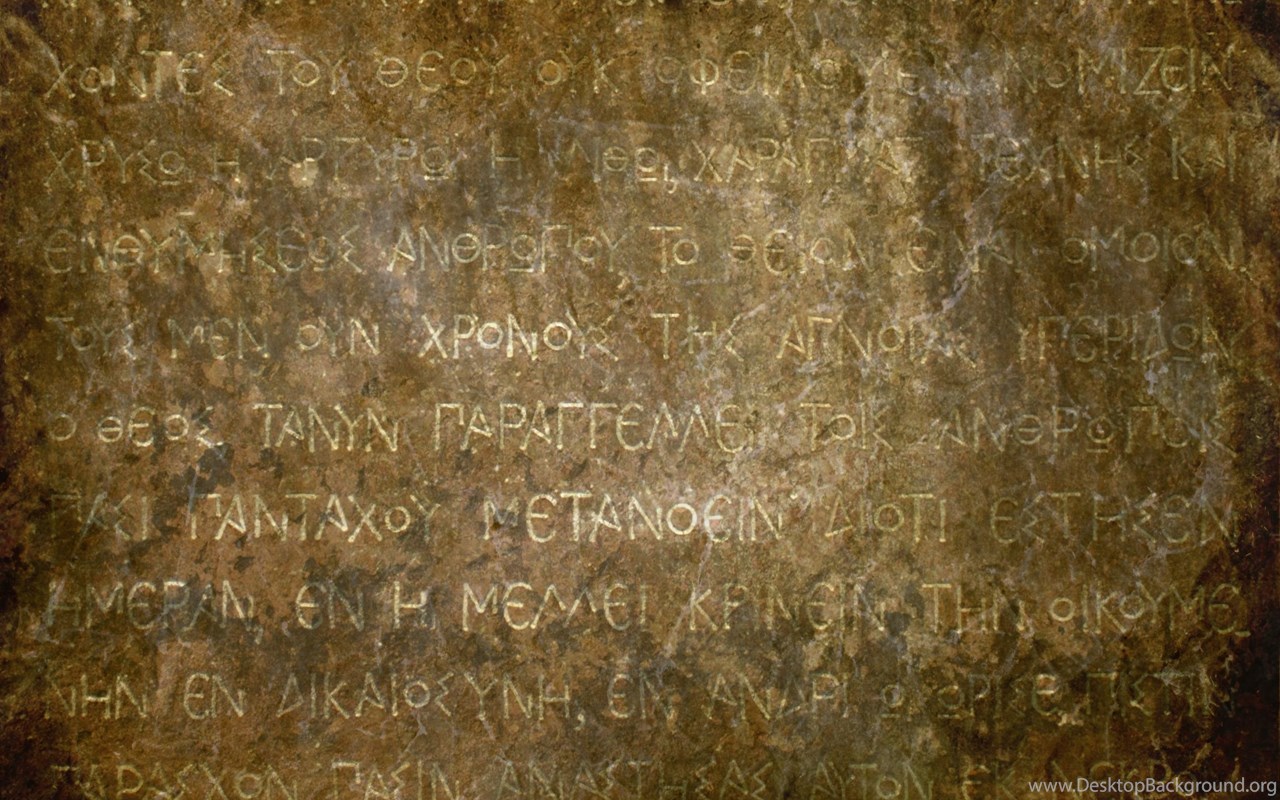 ΧΟΝΤΕΣ ΤΟΥ ΘΕΟΥ ΟΥΚ ΟΦΕΙΛΟΜΕΝ ΝΟΜΙΖΕΙΝ
ΧΡΥΣΩ Η ΑΡΓΥΡΩ Η ΛΙΘΩ, ΧΑΡΑΓΜΑΤΙ ΤΕΧΝΗΣ ΚΑΙ
ΕΝΘΥΜΗΣΕΩΣ ΑΝΘΡΩΠΟΥ, ΤΟ ΘΕΙΟΝ ΕΙΝΑΙ ΟΜΟΙΟΝ.
ΤΟΥΣ ΜΕΝ ΟΥΝ ΧΡΟΝΟΥΣ ΤΗΣ ΑΓΝΟΙΑΣ ΥΠΕΡΙΔΩΝ
Ο ΘΕΟΣ ΤΑΝΥΝ ΠΑΡΑΓΓΕΛΛΕΙ ΤΟΙΣ ΑΝΘΡΩΠΟΙΣ
ΠΑΣΙ ΠΑΝΤΑΧΟΥ ΜΕΤΑΝΟΕΙΝ ΔΙΟΤΙ ΕΣΤΗΣΕΝ
ΗΜΕΡΑΝ, ΕΝ Η ΜΕΛΛΕΙ ΚΡΙΝΕΙΝ ΤΗΝ ΟΙΚΟΥΜΕ
ΝΗΝ ΕΝ ΔΙΚΑΙΟΣΥΝΗ, ΕΝ ΑΝΔΡΙ Ω ΩΡΙΣΕ, ΠΙΣΤΙΝ
ΠΑΡΑΣΧΩΝ ΠΑΣΙΝ ΑΝΑΣΤΗΣΑΣ ΑΥΤΟΝ ΕΚ ΝΕΚΡΩΝ
www.DesktopBackground.org